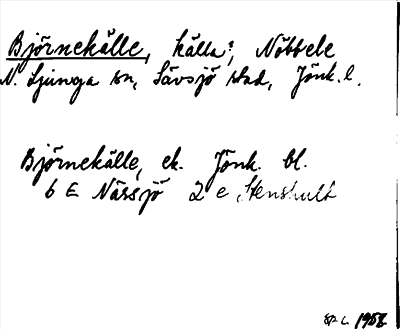 Björnekälle, källa?, Nöbbele
N. Ljunga sn, Sävsjö stad, Jönk. l.
Björnekälle, ek. Jönk. bl.
6 E Nässjö 2 e Stenshult
1958